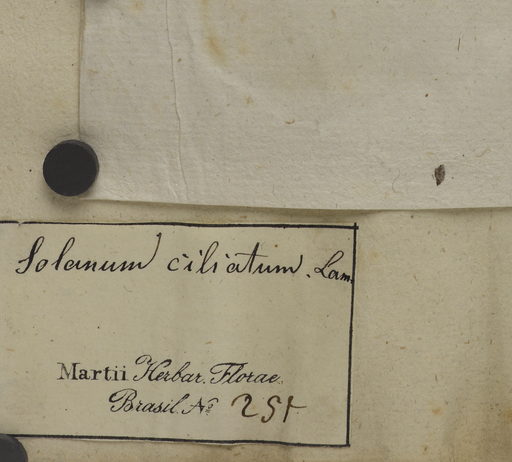 Solanum ciliatum. Lam.
Martii Herbar. Florae
Brasil. No 251